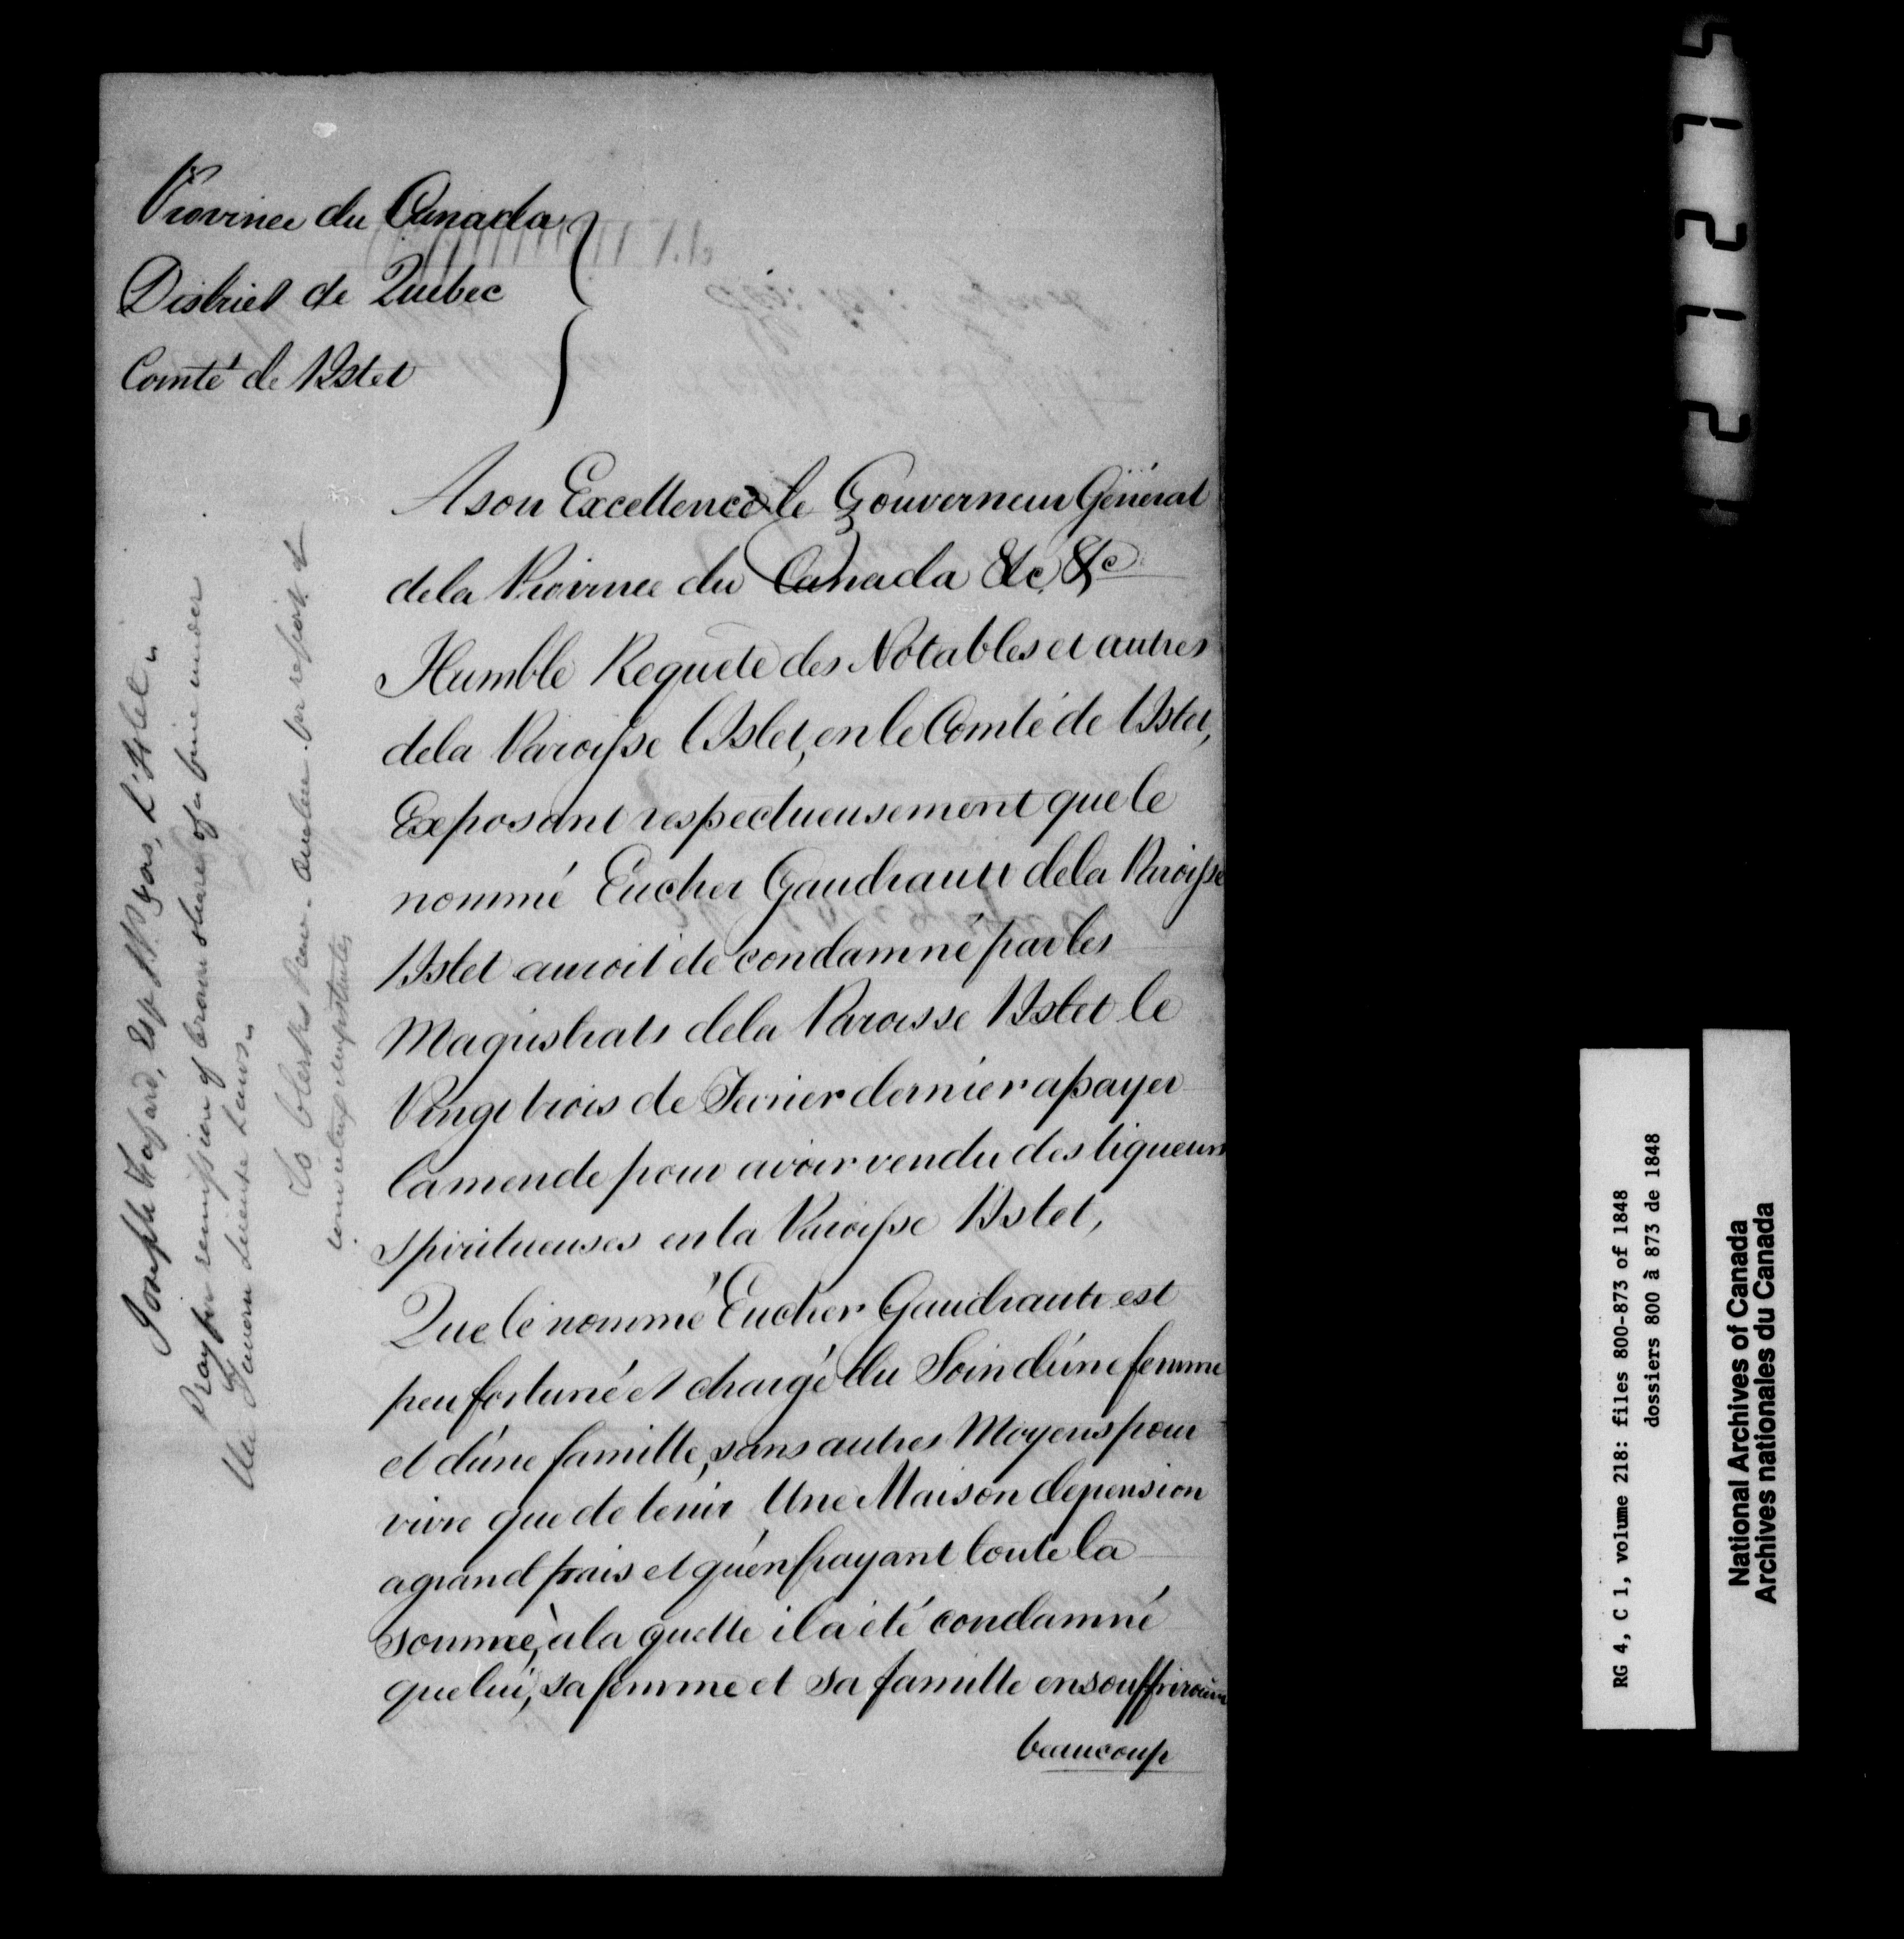 Province du Canada
District de Québec
Comté de l'Islet
A son Excellence le Gouverneur Général
de la Province du Canada &c &c
Humble Requete des Notables et autres
de la Paroisse l'Islet, en le Comté de l'Islet,
Exposant respectueusement que le
nommé Eucher Gaudrault de la Paroisse
l'Islet auroit été condamné par les
Magistrats de la Paroisse l'Islet le
Vingt trois de Fevrier dernier a payer
l'amende pour avoir vendu des liqueurs
spiritueuses en la Paroisse l'Islet,
Que le nommé Eucher Gaudrault est
peu fortuné et chargé du Soin d'une femme
et d'une famille, sans autres Moyens pour
vivre que de tenir Une Maison de pension
a grand frais et qu'en payant toute la
somme, a la quelle il a été condamné
que lui, sa femme et sa famille en souffriroient
beaucoup
Joseph Esq J.P. & ors, L'Islet.
Pray for remission of Crown share of a fine under
the Tavern License Laws.
To Clerk Peace Quebec for report &
consulting Magistrates
51212
RG 4, C 1, volume 218: files 800-873 of 1848
dossiers 800 à 873 de 1848
National Archives of Canada
Archives nationales du Canada